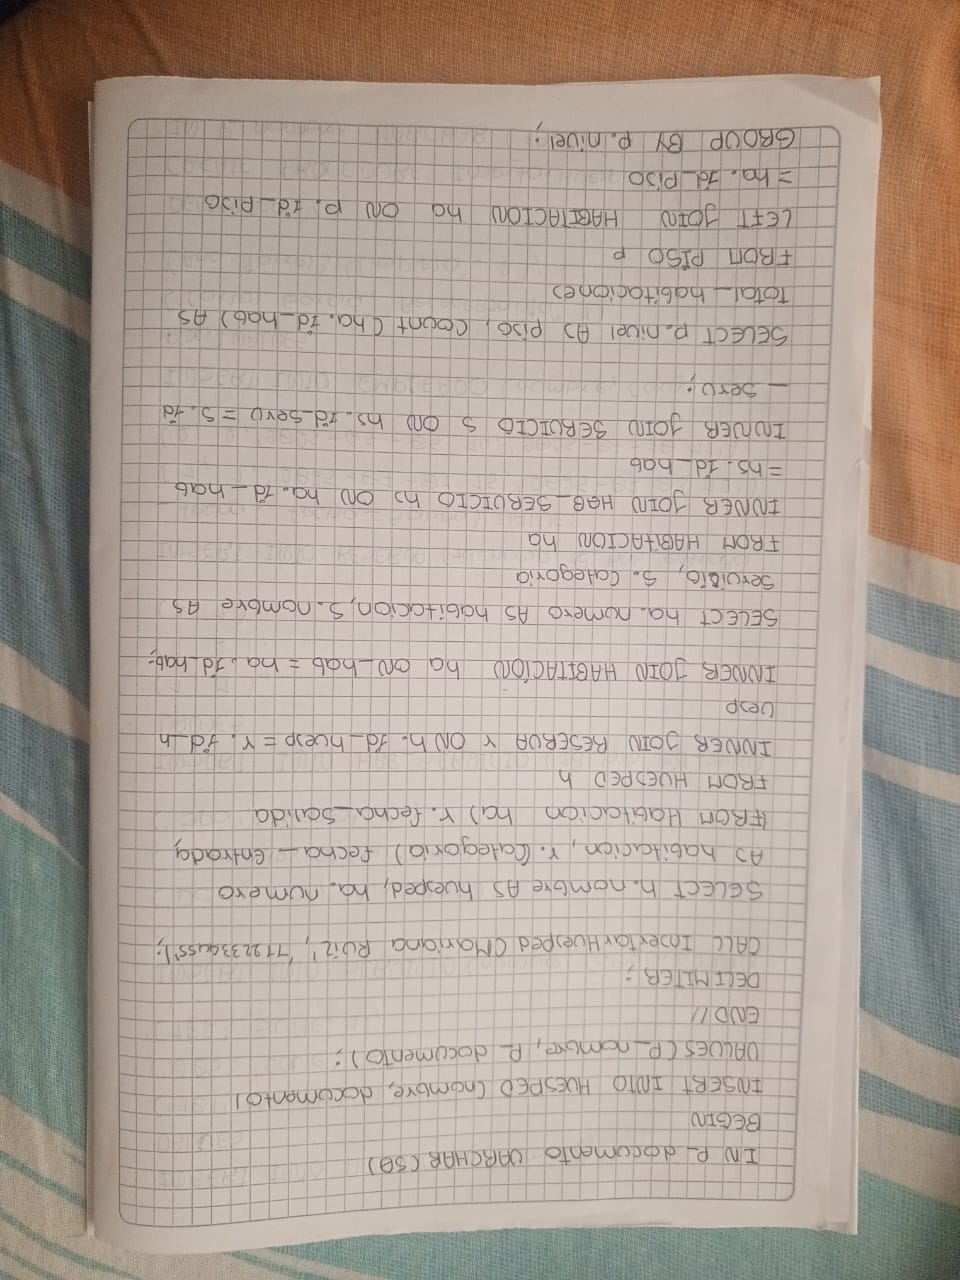 IN P_documento VARCHAR(50)
BEGIN
INSERT INTO HUESPED (nombre, documento)
VALUES (P_nombre, P_documento);
END //
DELIMITER ;
CALL InsertarHuesped (Mariana Ruiz', '
SELECT h.nombre AS huesped, ha.numero
AS habitacion, r.(categoria) fecha_entrada,
FROM Habitacion ha) r.fecha_salida
FROM HUESPED h
INNER JOIN RESERVA r ON h.id_huesp = r.id_h
uesp
INNER JOIN HABITACION ha ON_hab = ha.id_hab;
SELECT ha.numero AS habitacion, S.nombre AS
servicio, S.categoria
FROM HABITACION ha
INNER JOIN HAB_SERVICIO hs ON ha.id_hab
= hs.id_hab
INNER JOIN SERVICIO S ON hs.id_serv = S.id
_serv;
SELECT p.nivel AS piso, count (ha.id_hab) AS
Total_habitaciones
FROM PISO P
LEFT JOIN HABITACION ha ON p.id_piso
= ha.id_piso
GROUP BY p.nivel;